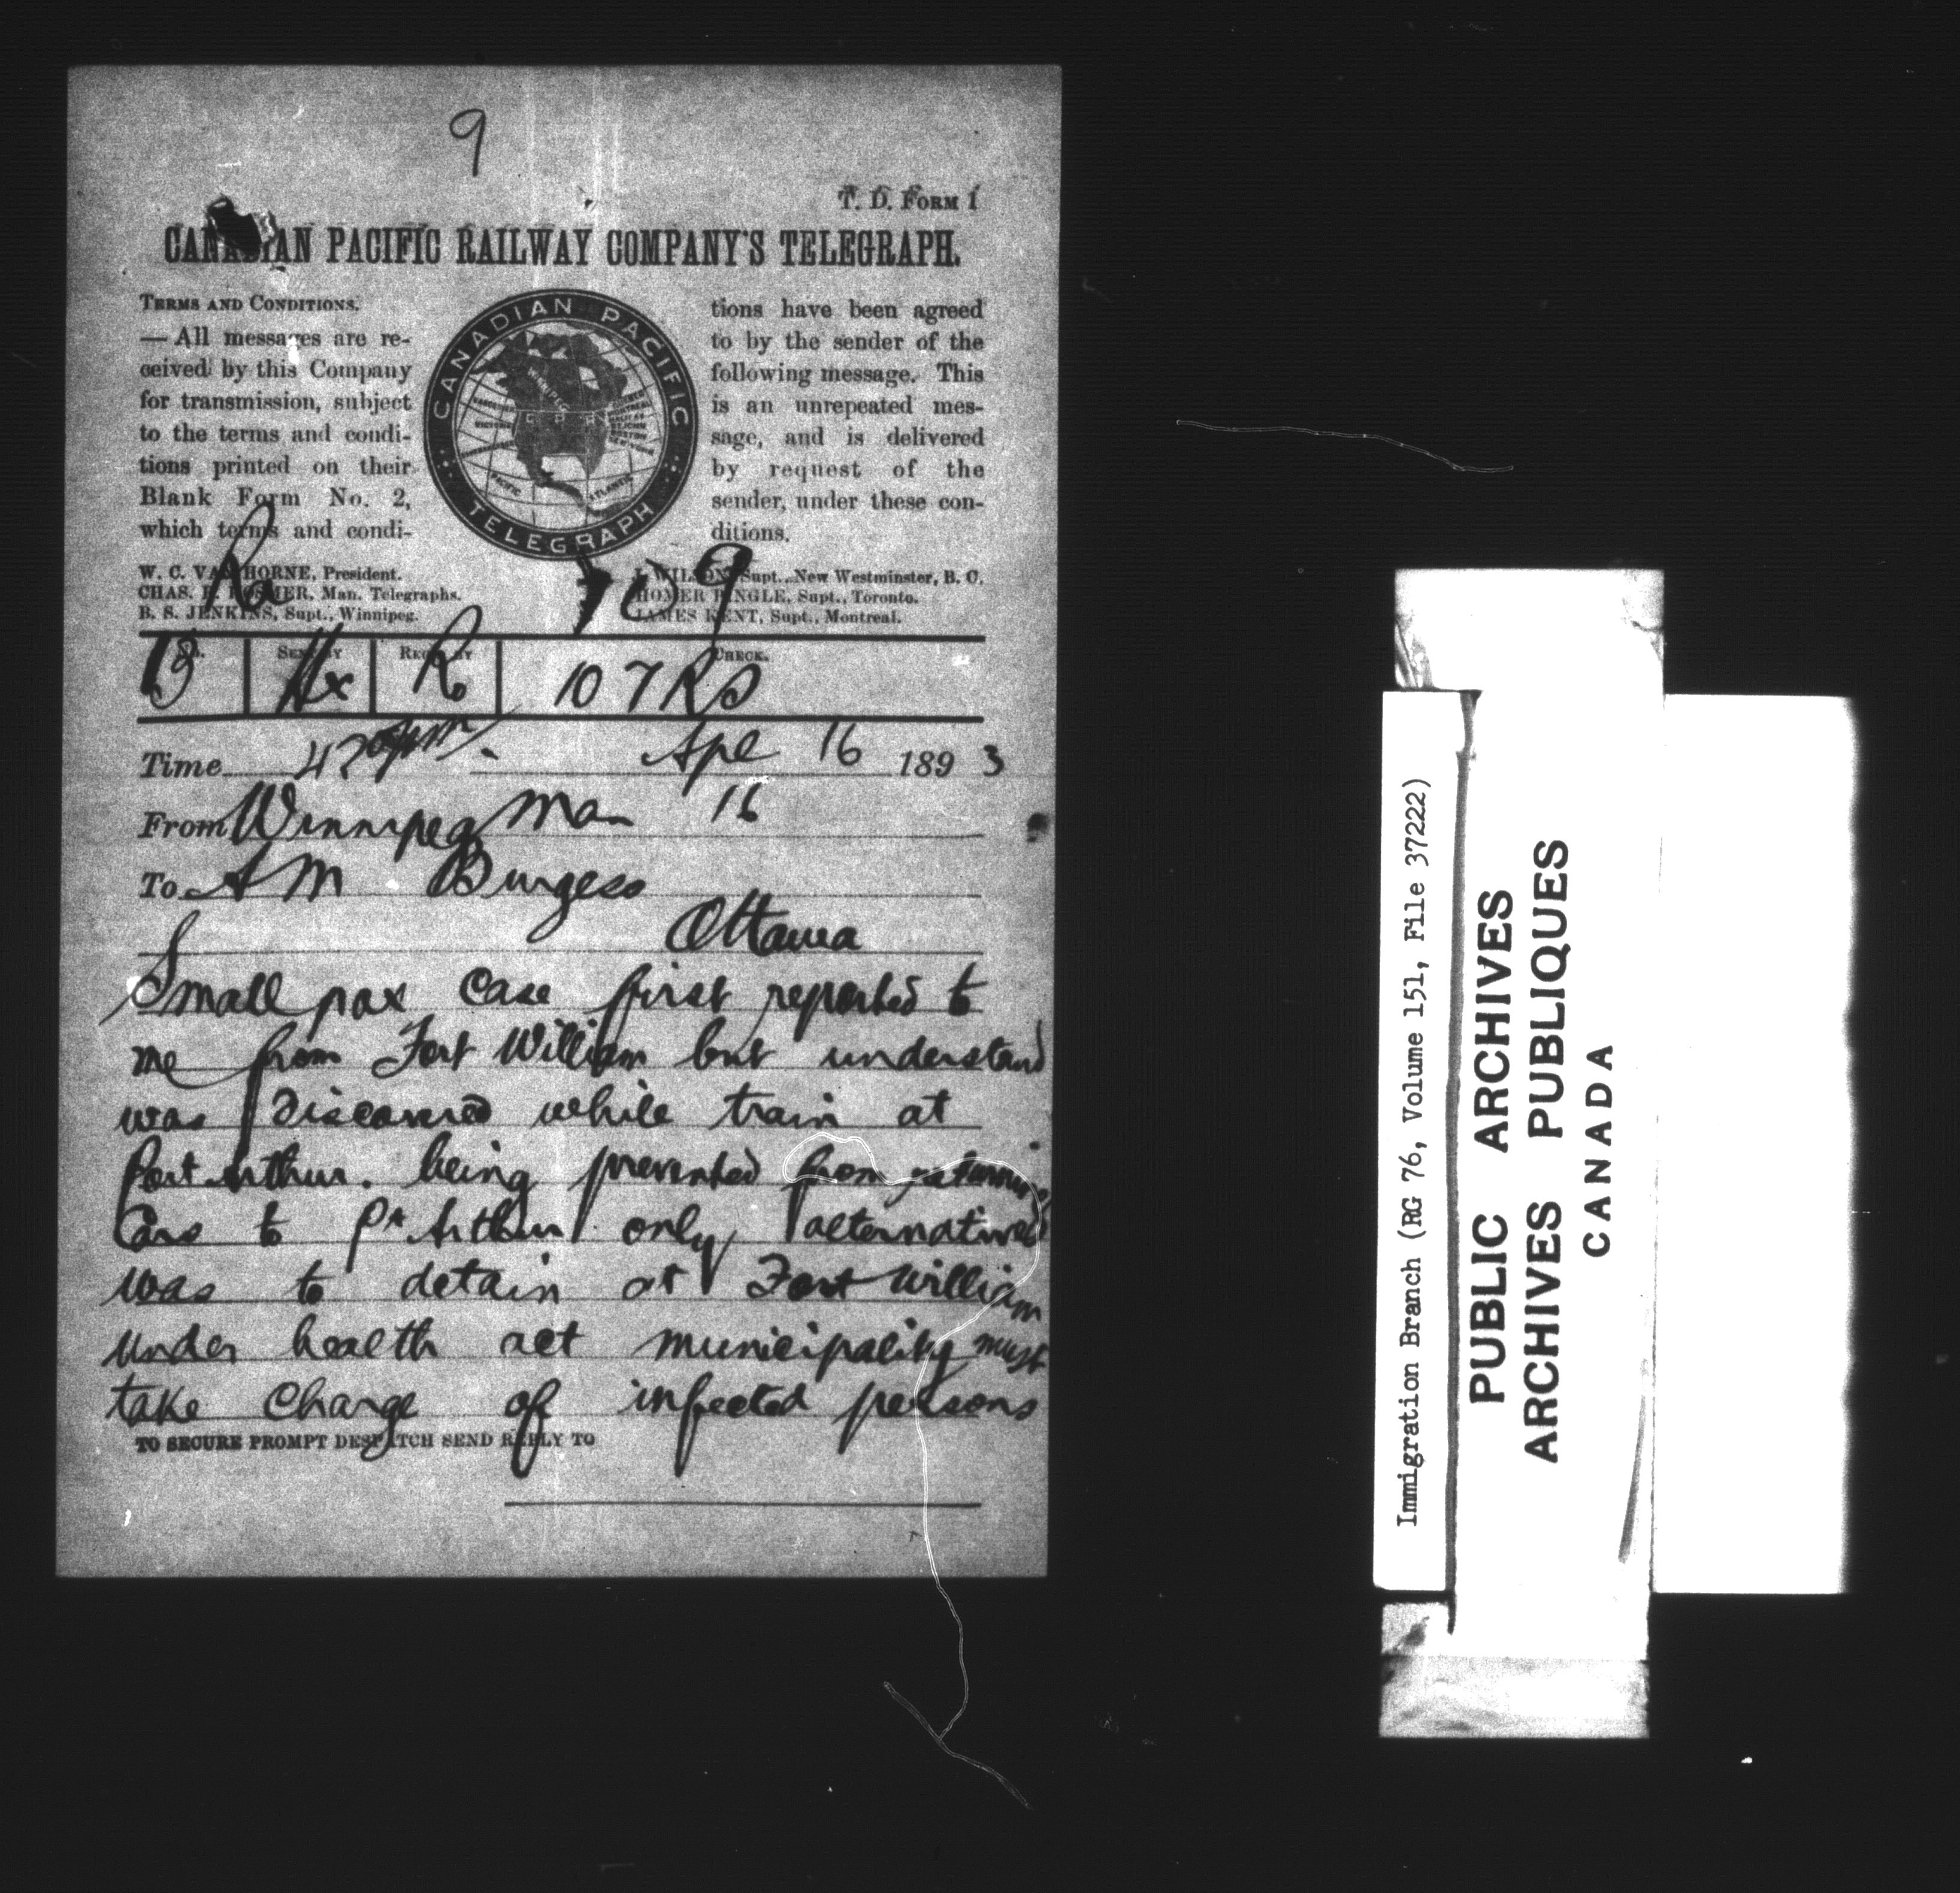 9
T. D. FORM 1
CANADIAN PACIFIC RAILWAY COMPANY'S TELEGRAPH.
TERMS AND CONDITIONS.
— All messages are re-
ceived by this Company
for transmission, subject
to the terms and condi-
tions printed on their
Blank Form No. 2,
which terms and condi-
CANADIAN PACIFIC
TELEGRAPH
WINNIPEG
C P R
PACIFIC
ATLANTIC
tions have been agreed
to by the sender of the
following message. This
is an unrepeated mes-
sage, and is delivered
by request of the
sender, under these con-
ditions.
W. C. VAN HORNE, President.
CHAS. R. HOSMER, Man. Telegraphs.
B. S. JENKINS, Supt., Winnipeg.
J. WILSON, Supt., New Westminster, B. C.
HOMER PINGLE, Supt., Toronto.
JAMES KENT, Supt., Montreal.
Ro 709
SENT BY REC'D BY CHECK.
13 Hx Ro 107 Rs
Time Apl 16 1893
From Winnipeg Man 16
To A M Burgess
Ottawa
Small pox case first reported to
me from Fort William but understand
was discovered while train at
Port Arthur. being prevented from returning
Cars to Pt Arthur only alternative
was to detain at Fort William
under health act municipality must
take charge of infected persons
TO SECURE PROMPT DESPATCH SEND REPLY TO
Immigration Branch (RG 76, Volume 151, File 37222)
PUBLIC ARCHIVES
ARCHIVES PUBLIQUES
CANADA